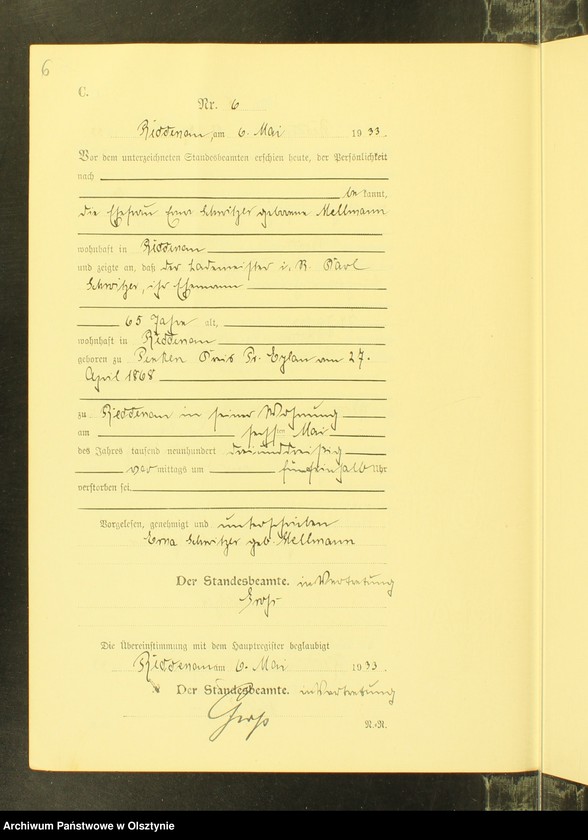 6
C.
Nr. 6
Riddenau, am 6. Mai 1933.
Vor dem unterzeichneten Standesbeamten erschien heute, der Persönlichkeit
nach
be kannt,
die Ehefrau Erna Schwitzer geborene Mellmann
wohnhaft in
und zeigte an, daß der Lademeister i. R. Karl
Schwitzer, ihr Ehemann
65 Jahre alt,
wohnhaft in
geboren zu Penken Kreis Pr. Eylau am 27.
April 1868
zu in seiner Wohnung
am sechsten Mai
des Jahres tausend neunhundert dreiunddreißig
vor mittags um fünfeinhalb Uhr
verstorben sei.
Vorgelesen, genehmigt und unterschrieben
Erna Schwitzer geb. Mellmann
Der Standesbeamte. in Vertretung
Die Übereinstimmung mit dem Hauptregister beglaubigt
am 6. Mai 1933.
Der Standesbeamte. in Vertretung
N.-R.
Archiwum Państwowe w Olsztynie